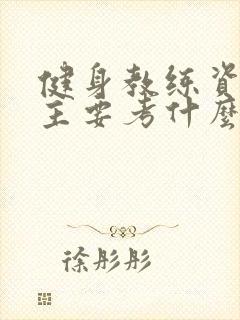 健身教练资
主要考什麼
徐彤彤